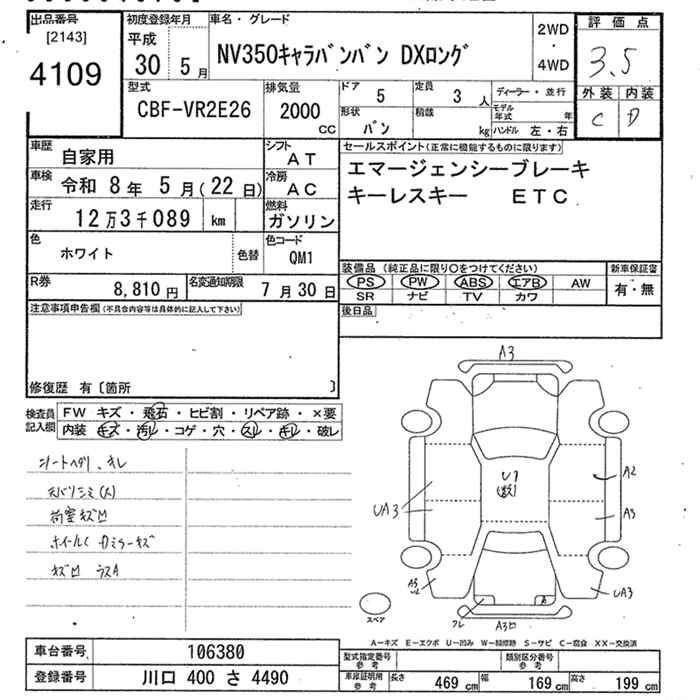 出品番号
[2143]
4109
初度登録年月
平成
30 5月
車名・グレード
NV350キャラバンバン DXロング
2WD
・
4WD
評価点
3.5
外装 内装
C D
型式
CBF-VR2E26
排気量
2000
CC
ドア
5
定員
3人
形状
バン
積載
kg
ディーラー・並行
モデル年式 年
ハンドル 左・右
車歴
自家用
シフト
AT
車検
令和 8年 5月(22日)
冷房
AC
走行
12万3千089 km
燃料
ガソリン
色
ホワイト
色替
色コード
QM1
R券
8,810円
名変通知期限
7月30日
セールスポイント(正常に機能するものに限ります)
エマージェンシーブレーキ
キーレスキー ETC
装備品(純正品に限り○をつけてください)
PS PW ABS エアB AW
SR ナビ TV カワ
新車保証書
有・無
後日品
注意事項申告欄(不具合内容等は具体的に記入して下さい)
修復歴 有〔箇所 〕
検査員記入欄
FW キズ・飛石・ヒビ割・リペア跡・×要
内装 キズ・汚レ・コゲ・穴・スレ・キレ・破レ
シートヘタリ、キレ
天バリシミ(大)
荷室キズ凹
ホイールC Dミラーキズ
A3
U1
UA3
A2
A3
A3
UA3
フレ
A
A3凹
スペア
A-キズ E-エクボ U-凹み W-補修跡 S-サビ C-腐食 XX-交換済
車台番号
106380
登録番号
川口 400 さ 4490
型式指定番号
参考
類別区分番号
参考
車庫証明用
参考
長さ 469cm 幅 169cm 高さ 199cm